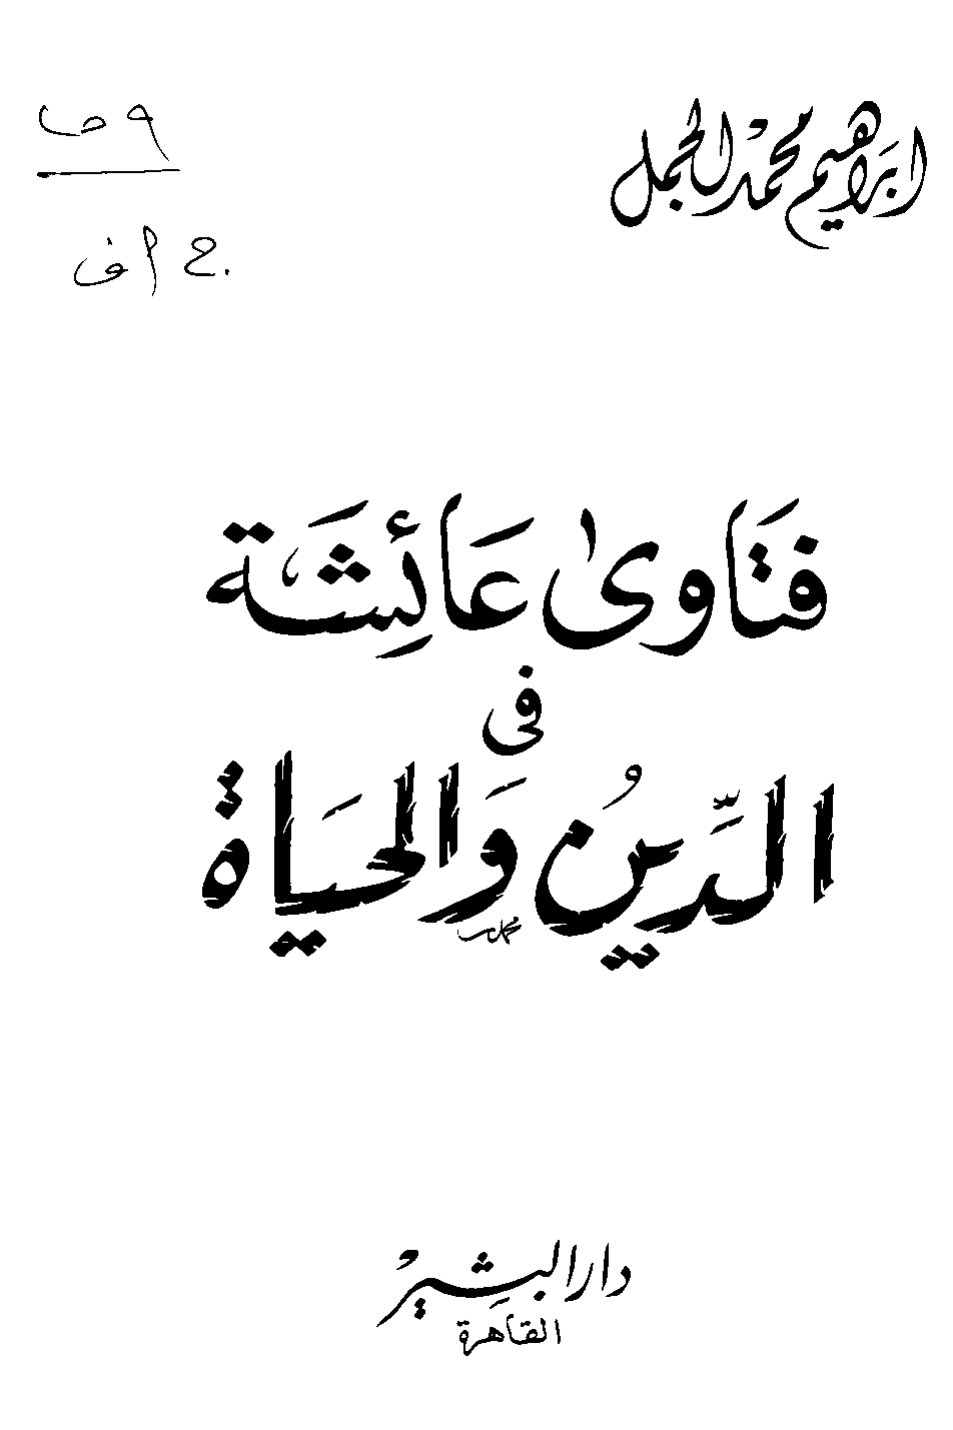 ابراهيم محمد الجمل
فَتَاوىٰ عَائِشَة
فى
الدِّينُ وَالحيَاة
دار البشير
القاهرة